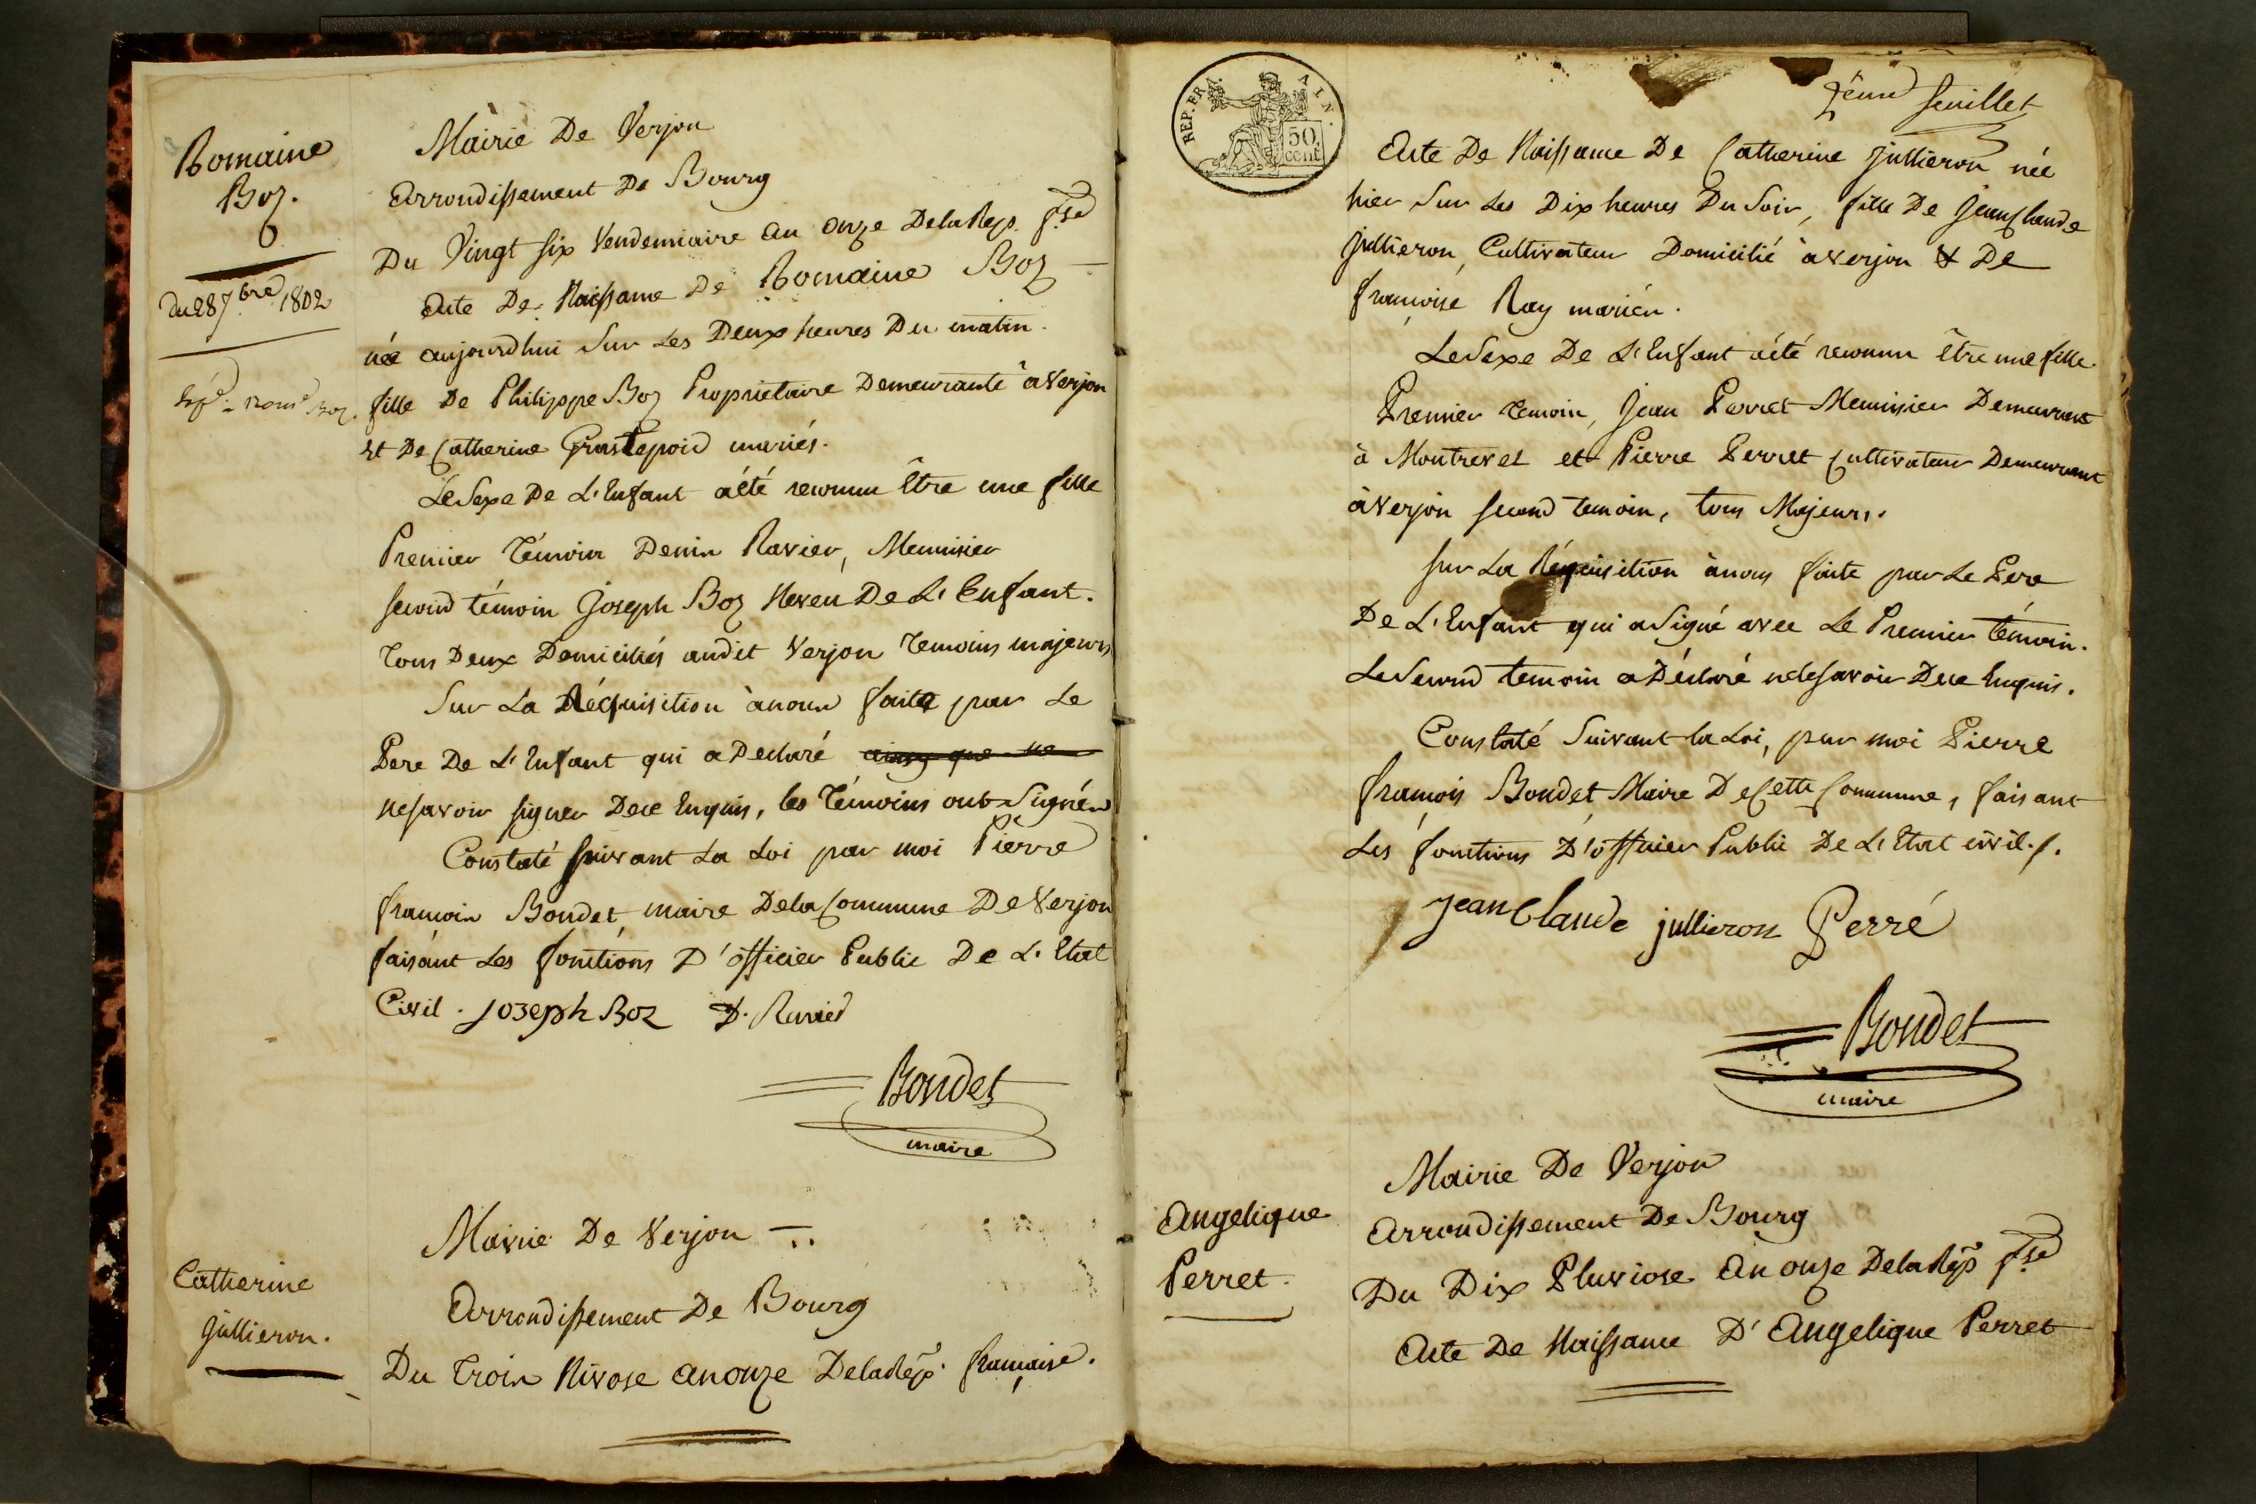 Romaine
Boz.
Du 28 7.bre 1802
Mairie De Verjon
Arrondissement De Bourg
Du Vingt six Vendemiaire an onze Dela Rep. f.se
Acte De Naissance De Romaine Boz
née aujourdhui Sur Les Deux heures Du matin.
fille De Philippe Boz Proprietaire Demeurante à Verjon
et De Catherine mariés.
Le Sexe De L'Enfant a été reconnu Être une fille
Premier Témoin Denis Ravier, Menuisier
second témoin Joseph Boz Neveu De L'Enfant.
Tous Deux Domiciliés audit Verjon Temoins majeurs
Sur La Réquisition à nous faite par Le
Pere De L'Enfant qui a Declaré ainsy que ne
ne savoir signer De ce Enquis, les Témoins ont Signés
Constaté suivant La Loi par moi Pierre
françois Bondet maire Dela Commune De Verjon
faisant Les fonctions D'officier Public De L'Etat
Civil. Jozeph Boz D. Ravied
Bondet
maire
Catherine
Jullieron.
Mairie De Verjon
Arrondissement De Bourg
Du Trois Nivose an onze Dela Rep. française.
REP. FRA. AIN.
50 cent
2eme feuillet
Acte De Naissance De Catherine Jullieron née
hier Sur Les Dix heures Du Soir, fille De Jean Claude
Jullieron, Cultivateur Domicilié à Verjon & De
françoise Ray mariés.
Le Sexe De L'Enfant a été reconnu être une fille.
Premier Temoin, Jean Perret Menuisier Demeurant
à Montrevel et Pierre Perret Cultivateur Demeurant
à Verjon second temoin, tous Majeurs.
sur La Réquisition à nous faite par Le Pere
De L'Enfant qui a Signé avec Le Premier témoin.
Le Second temoin a Déclaré ne le savoir De ce Enquis.
Constaté Suivant la Loi, par moi Pierre
françois Bondet Maire De Cette Commune, faisant
Les fonctions D'officier Public De L'Etat civil.
Jean Claude jullieron Perré
Bondet
maire
Angelique
Perret.
Mairie De Verjon
Arrondissement De Bourg
Du Dix Pluviose An onze Dela Rép. f.se
Acte De Naissance D'Angelique Perret